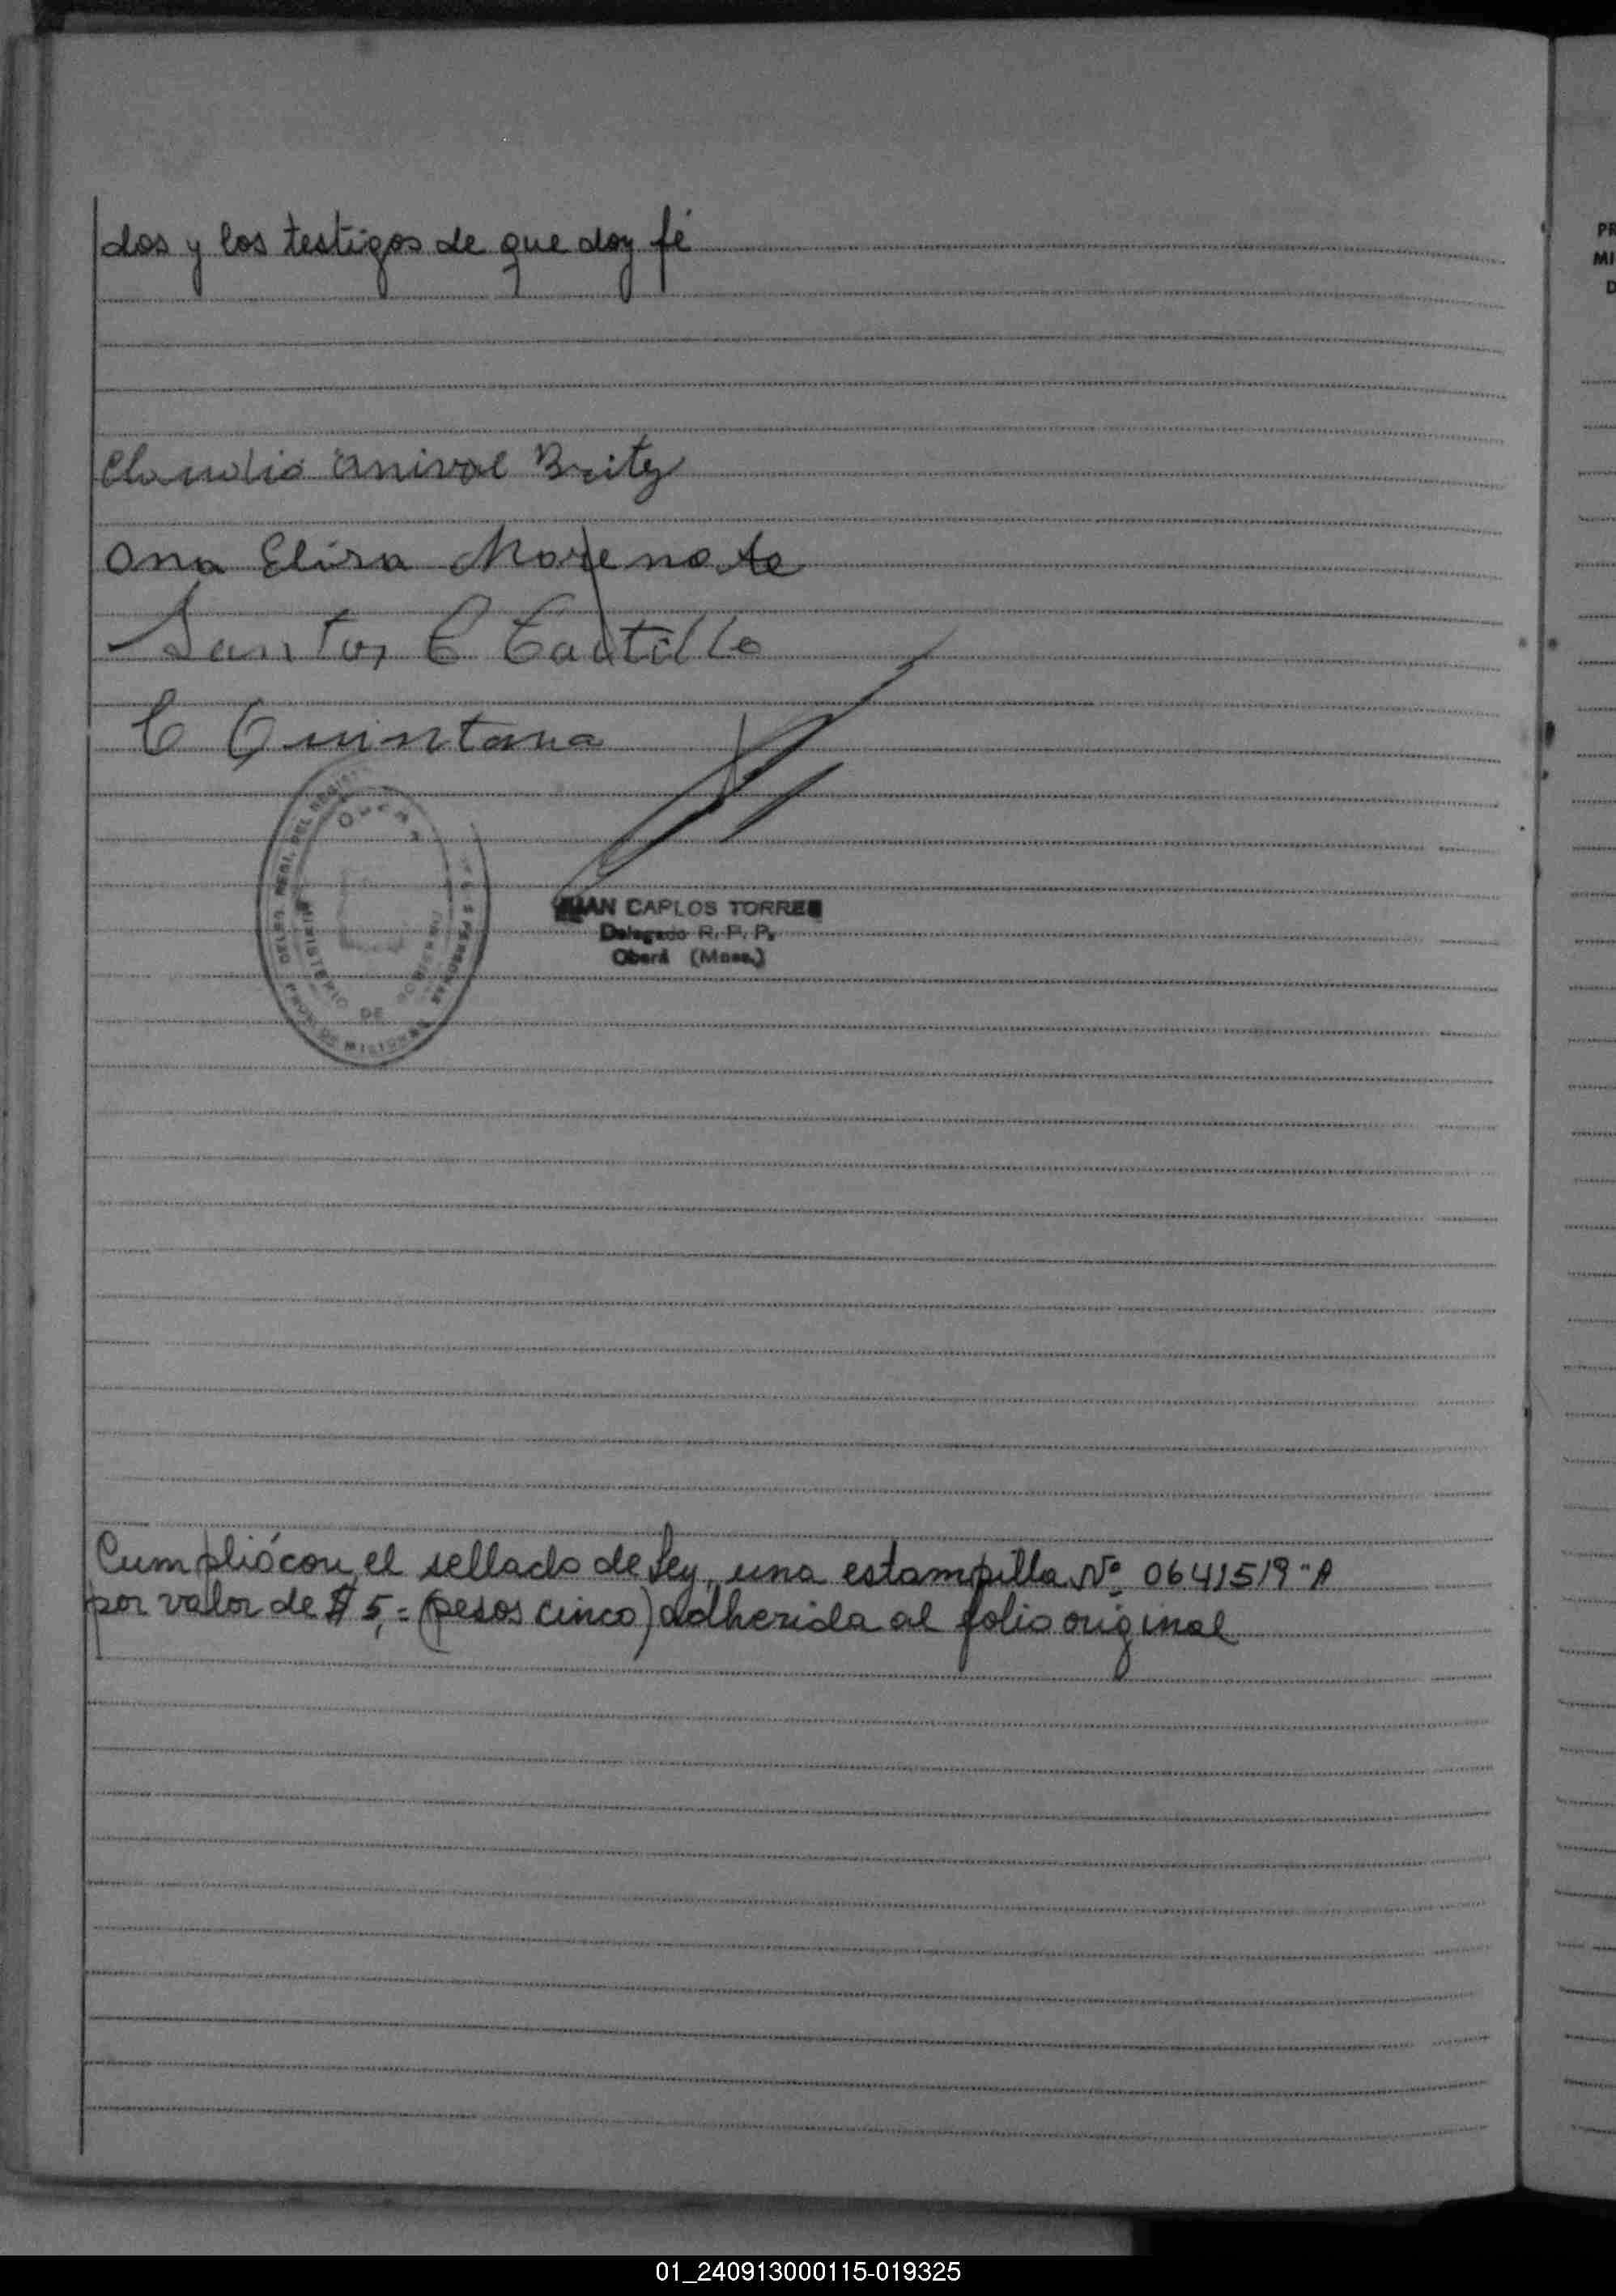 dos y los testigos de que doy fé
Claudio anival Britez
Ana Elisa Moreno de
Santos C Castillo
C Quintana
JUAN CARLOS TORRES
Delegado R. P. P.
Oberá (Mnes.)
MINISTERIO DE GOBIERNO
PROV. DE MISIONES
Cumplió con el sellado de Ley, una estampilla Nº 0641519-A
por valor de $ 5,= (pesos cinco) adherida al folio original
PR
MI
D
01_240913000115-019325